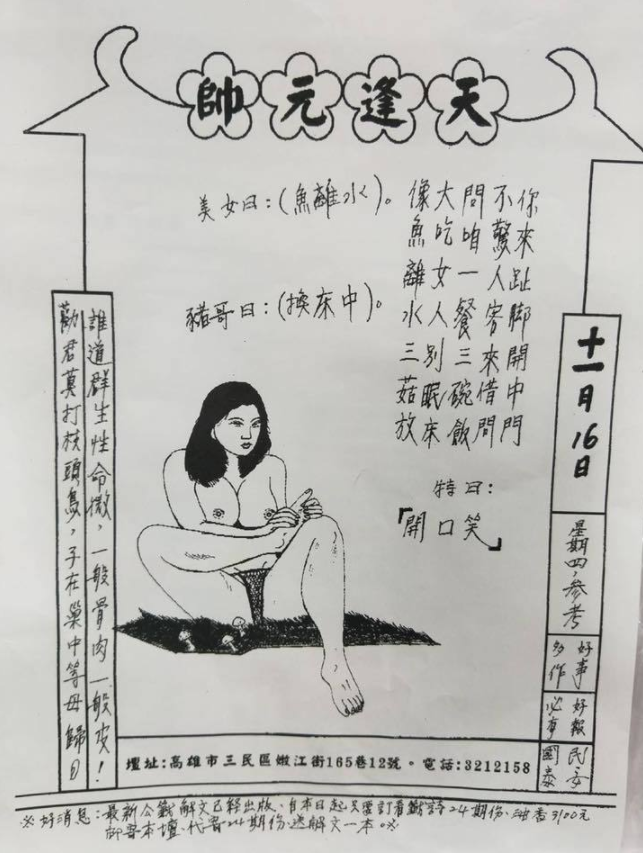 天逢元帥
你來趾脚開中門
不驚人客來借問
問咱一餐三碗飯
大吃女人別眠床
像魚離水三菇放
美女曰：(魚離水)。
豬哥曰：(換床中)。
特曰：
「開口笑」
十一月16日
星期四．參考
好事多作
好報必享
民安國泰
誰道群生性命微，一般骨肉一般皮！
勸君莫打枝頭鳥，子在巢中等母歸。
壇址:高雄市三民區嫩江街165巷12號。電話:3212158
※好消息：最新公籤解文已經出版、自本日起只要訂看籤詩24期份、油香3100元
寄本壇、代寄24期份送解文一本。※